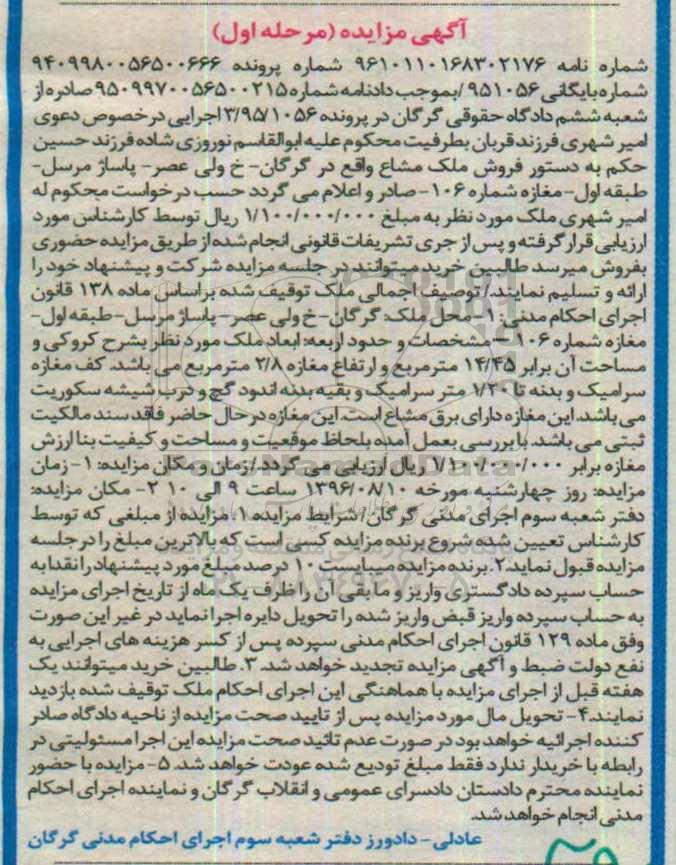 آگهی مزایده (مرحله اول)
شماره نامه ۹۶۱۰۱۱۰۱۶۸۳۰۲۱۷۶ شماره پرونده ۹۴۰۹۹۸۰۰۵۶۵۰۰۶۶۶
شماره بایگانی ۹۵۱۰۵۶ /بموجب دادنامه شماره ۹۵۰۹۹۷۰۰۰۵۶۵۰۰۲۱۵ صادره از
شعبه ششم دادگاه حقوقی گرگان در پرونده ۳/۹۵/۱۰۵۶ اجرایی درخصوص دعوی
امیر شهری فرزند قربان بطرفیت محکوم علیه ابوالقاسم نوروزی شاده فرزند حسین
حکم به دستور فروش ملک مشاع واقع در گرگان- خ ولی عصر- پاساژ مرسل-
طبقه اول-مغازه شماره ۱۰۶- صادر و اعلام می گردد حسب درخواست محکوم له
امیر شهری ملک مورد نظر به مبلغ ۱/۱۰۰/۰۰۰/۰۰۰ ریال توسط کارشناس مورد
ارزیابی قرار گرفته و پس از جری تشریفات قانونی انجام شده از طریق مزایده حضوری
بفروش میرسد طالبین خرید میتوانند در جلسه مزایده شرکت و پیشنهاد خود را
ارائه و تسلیم نمایند./ توصیف اجمالی ملک توقیف شده براساس ماده ۱۳۸ قانون
اجرای احکام مدنی: ۱- محل ملک: گرگان- خ ولی عصر- پاساژ مرسل-طبقه اول-
مغازه شماره ۱۰۶ –مشخصات و حدود اربعه: ابعاد ملک مورد نظر بشرح کروکی و
مساحت آن برابر ۱۴/۴۵ مترمربع و ارتفاع مغازه ۲/۸ مترمربع می باشد. کف مغازه
سرامیک و بدنه تا ۱/۲۰ متر سرامیک و بقیه بدنه اندود گچ و درب شیشه سکوریت
می باشد. این مغازه دارای برق مشاع است. این مغازه در حال حاضر فاقد سند مالکیت
ثبتی می باشد. با بررسی بعمل آمده بلحاظ موقعیت و مساحت و کیفیت بنا ارزش
مغازه برابر ۱/۱۰۰/۰۰۰/۰۰۰ ریال ارزیابی می گردد./زمان و مکان مزایده: ۱- زمان
مزایده: روز چهارشنبه مورخه ۱۳۹۶/۰۸/۱۰ ساعت ۹ الی ۱۰ ۲- مکان مزایده:
دفتر شعبه سوم اجرای مدنی گرگان/شرایط مزایده ۱. مزایده از مبلغی که توسط
کارشناس تعیین شده شروع برنده مزایده کسی است که بالاترین مبلغ را در جلسه
مزایده قبول نماید. ۲. برنده مزایده میبایست ۱۰ درصد مبلغ مورد پیشنهاد را نقدا به
حساب سپرده دادگستری واریز و مابقی آن را ظرف یک ماه از تاریخ اجرای مزایده
به حساب سپرده واریز قبض واریز شده را تحویل دایره اجرا نماید در غیر این صورت
وفق ماده ۱۲۹ قانون اجرای احکام مدنی سپرده پس از کسر هزینه های اجرایی به
نفع دولت ضبط و آگهی مزایده تجدید خواهد شد. ۳. طالبین خرید میتوانند یک
هفته قبل از اجرای مزایده با هماهنگی این اجرای احکام ملک توقیف شده بازدید
نمایند. ۴- تحویل مال مورد مزایده پس از تایید صحت مزایده از ناحیه دادگاه صادر
کننده اجرائیه خواهد بود در صورت عدم تائید صحت مزایده این اجرا مسئولیتی در
رابطه با خریدار ندارد فقط مبلغ تودیع شده عودت خواهد شد. ۵- مزایده با حضور
نماینده محترم دادستان دادسرای عمومی و انقلاب گرگان و نماینده اجرای احکام
مدنی انجام خواهد شد.
عادلی- دادورز دفتر شعبه سوم اجرای احکام مدنی گرگان